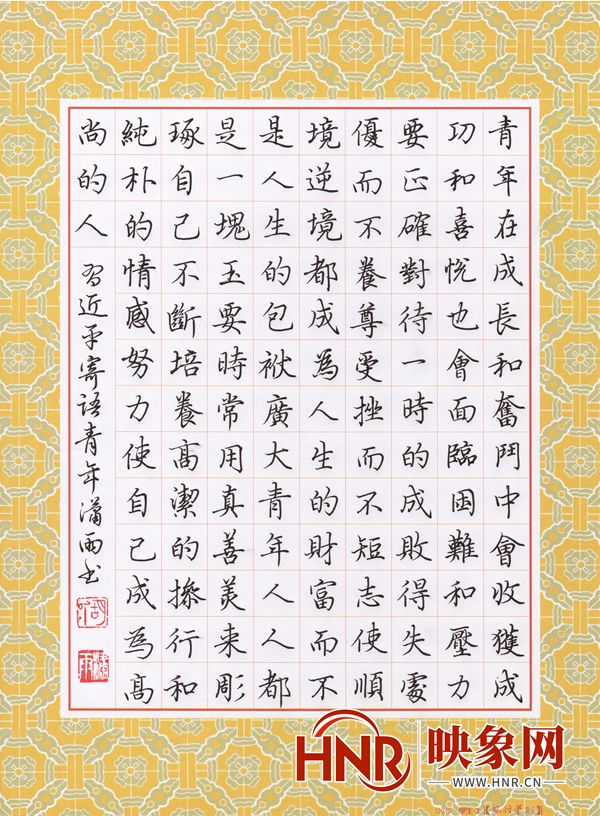 青年在成長和奮鬥中會收獲成
功和喜悅也會面臨困難和壓力
要正確對待一時的成敗得失處
優而不養尊受挫而不短志使順
境逆境都成為人生的財富而不
是人生的包袱廣大青年人人都
是一塊玉要時常用真善美来彫
琢自己不斷培養高潔的操行和
純朴的情感努力使自己成為高
尚的人
習近平寄語青年瀟雨書
HNR 映象网
WWW.HNR.CN